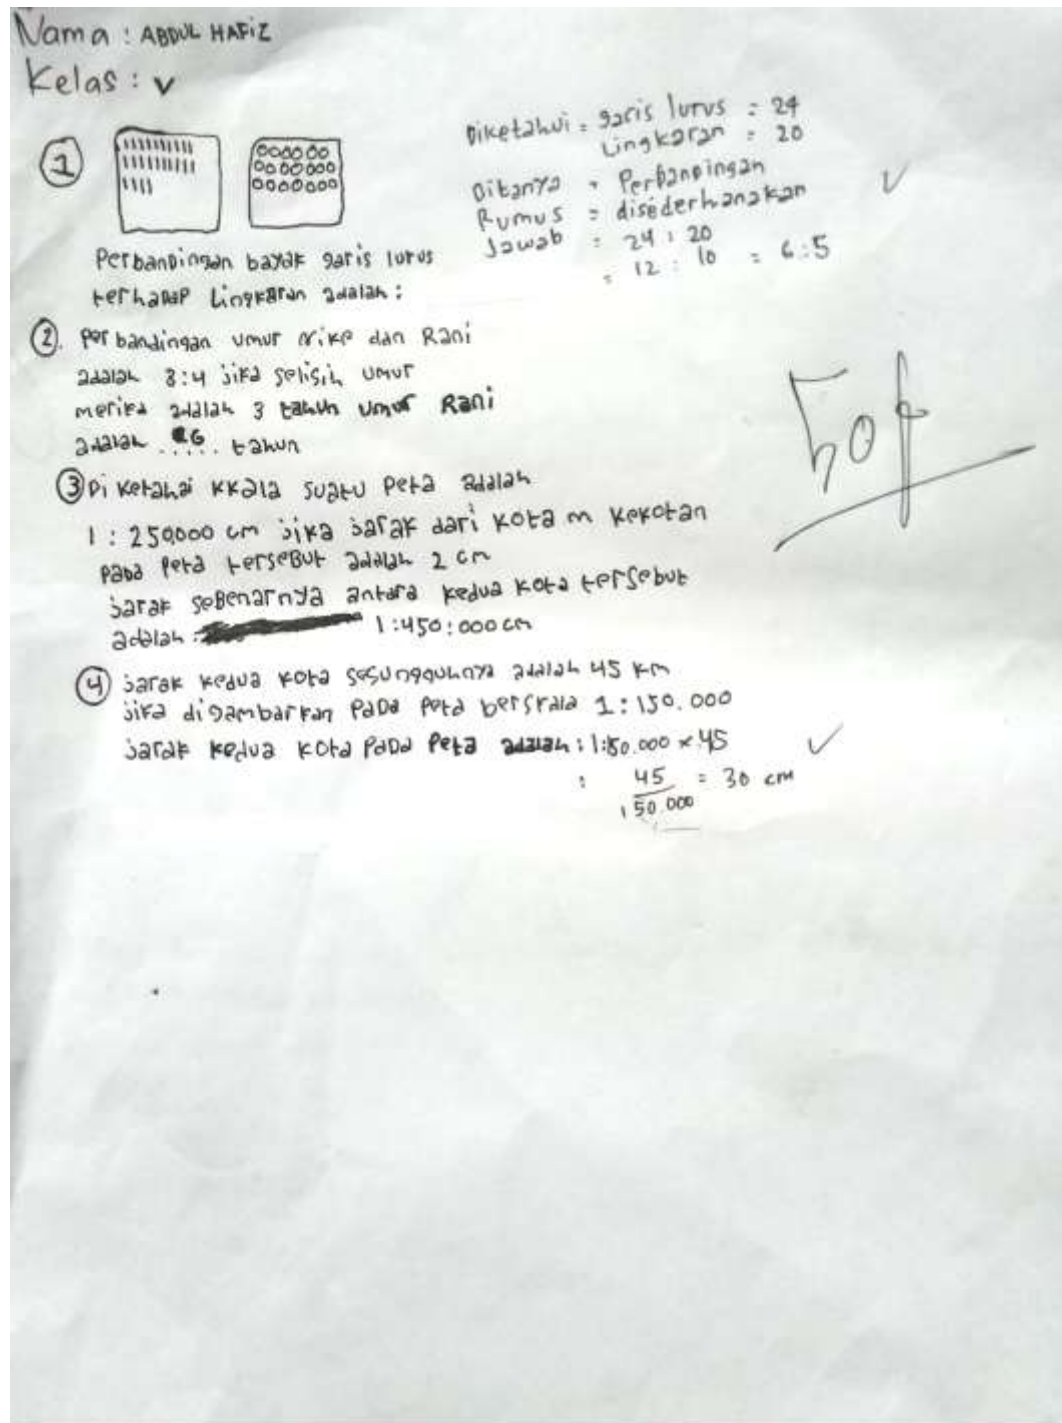 Nama : ABDUL HAFiZ
Kelas : V
1
Perbandingan bayak garis lurus
terhadap Lingkaran adalah :
Diketahui = garis lurus = 24
Lingkaran = 20
Ditanya = Perbandingan
Rumus = disederhanakan
Jawab = 24 : 20
= 12 : 10 = 6 : 5
2. Perbandingan umur Nike dan Rani
adalah 3:4 jika selisih umur
merika adalah 3 tahun umur Rani
adalah ..... tahun
3 Di Ketahai KKala suatu Peta adalah
1 : 250.000 cm jika jarak dari kota m kekotan
Pada Peta tersebut adalah 2 cm
jarak sebenarnya antara kedua kota tersebut
adalah : 1:450:000 cm
4 jarak kedua kota sesungguhnya adalah 45 km
jika digambarkan Pada Peta berskala 1 : 150.000
jarak kedua kota Pada Peta adalah : 1:50.000 x 45
: 45 = 30 cm
150.000
50